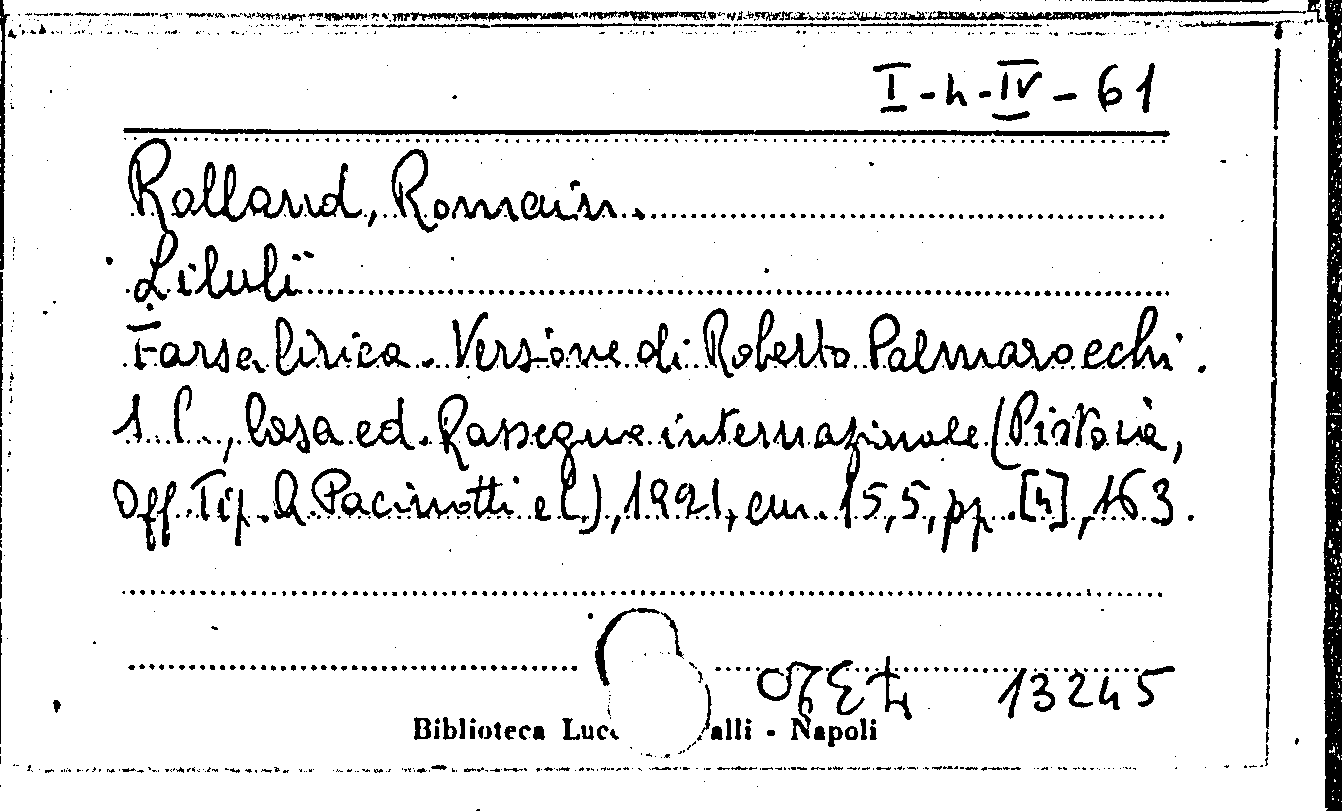 I-h-IV-61
Rolland, Romain.
Liluli
Farsa lirica. Versione di Roberto Palmarocchi.
s.l., Casa ed. Rassegna internazionale (Pistoia,
Off. Tip. A. Pacinotti e C.), 1921, cm. 15,5, pp. [4], 163.
13245
Biblioteca Luc alli - Napoli